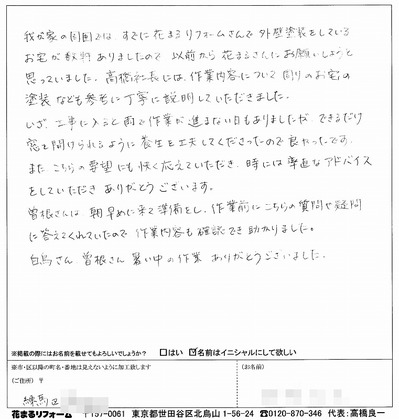 我が家の周囲では、すでに花まるリフォームさんで外壁塗装をしている
お宅が数軒ありましたので、以前から花まるさんにお願いしようと
思っていました。高橋社長には、作業内容について周りのお宅の
塗装なども参考に丁寧に説明していただきました。
いざ、工事に入ると雨で作業が進まない日もありましたが、できるだけ
窓を開けられるように養生を工夫してくださったので良かったです。
また、こちらの要望にも快く応えていただき、時には率直なアドバイス
をしていただきありがとうございます。
曽根さんは、朝早めに来て準備をし、作業前にこちらの質問や疑問
に答えてくれていたので、作業内容も確認でき助かりました。
白鳥さん、曽根さん、暑い中の作業、ありがとうございました。
※掲載の際にはお名前を載せてもよろしいでしょうか? □はい ☑名前はイニシャルにして欲しい
※市・区以降の町名・番地は見えないように加工致します
(ご住所) 〒 (お名前)
練馬区
花まるリフォーム 〒157-0061 東京都世田谷区北烏山1-56-24 ☎0120-870-346 代表:高橋良一